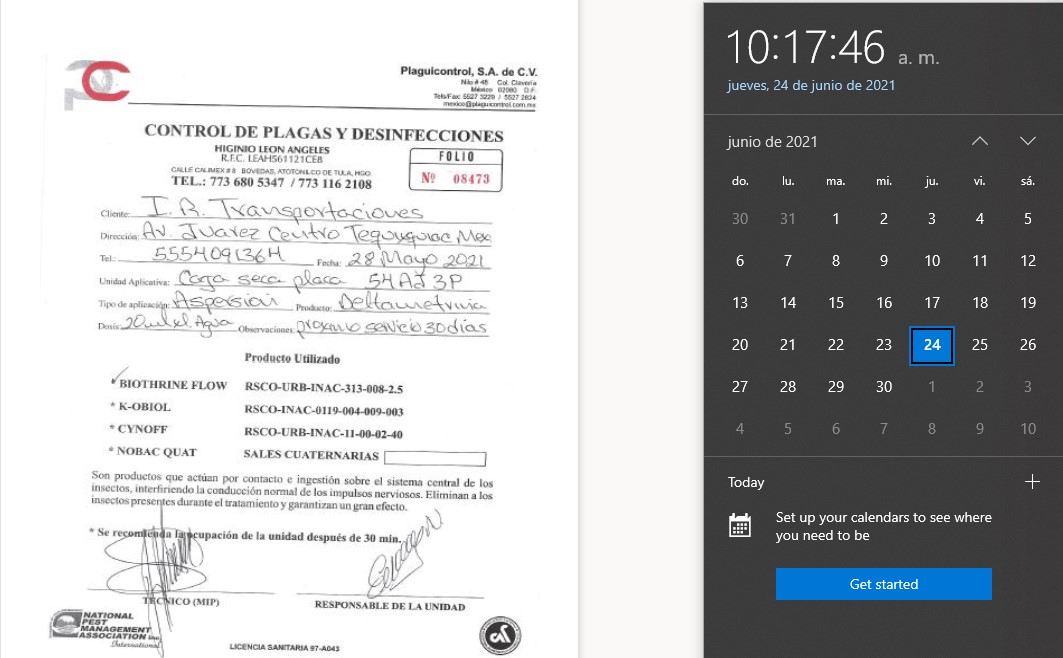 PC
Plaguicontrol, S.A. de C.V.
Nilo # 48 Col. Clavería
México 02080 D.F.
Tels/Fax: 5527 3229 / 5527 2824
mexico@plaguicontrol.com.mx
CONTROL DE PLAGAS Y DESINFECCIONES
HIGINIO LEON ANGELES
R.F.C. LEAH561121CE8
CALLE CALIMEX # 8 BOVEDAS, ATOTONILCO DE TULA, HGO.
TEL.: 773 680 5347 / 773 116 2108
FOLIO
Nº 08473
Cliente: I. R. Transportaciones
Dirección: Av. Juarez Centro Tequixquiac Mex
Tel.: 5554091364 Fecha: 28 Mayo 2021
Unidad Aplicativa: Caja seca placa 54AJ3P
Tipo de aplicación: Aspersion Producto: Deltametrina
Dosis: 20mlxl. Agua Observaciones: proximo servicio 30 días
Producto Utilizado
* BIOTHRINE FLOW RSCO-URB-INAC-313-008-2.5
* K-OBIOL RSCO-INAC-0119-004-009-003
* CYNOFF RSCO-URB-INAC-11-00-02-40
* NOBAC QUAT SALES CUATERNARIAS
Son productos que actúan por contacto e ingestión sobre el sistema central de los
insectos, interfiriendo la conducción normal de los impulsos nerviosos. Eliminan a los
insectos presentes durante el tratamiento y garantizan un gran efecto.
* Se recomienda la ocupación de la unidad después de 30 min.
TÉCNICO (MIP)
RESPONSABLE DE LA UNIDAD
NATIONAL
PEST
MANAGEMENT
ASSOCIATION Inc.
International
LICENCIA SANITARIA 97-A043
10:17:46 a. m.
jueves, 24 de junio de 2021
junio de 2021
do. lu. ma. mi. ju. vi. sá.
30 31 1 2 3 4 5
6 7 8 9 10 11 12
13 14 15 16 17 18 19
20 21 22 23 24 25 26
27 28 29 30 1 2 3
4 5 6 7 8 9 10
Today
Set up your calendars to see where
you need to be
Get started